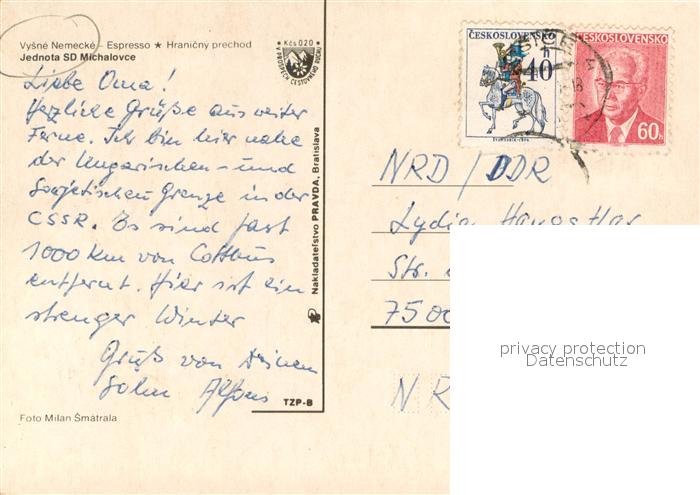 Vyšné Nemecké – Espresso ★ Hraničny prechod
Jednota SD Michalovce
Kčs 0,20
Liebe Oma!
Herzliche Grüße aus weiter
Ferne. Ich bin hier nahe
der Ungarischen - und
Sowjetischen Grenze in der
CSSR. Es sind fast
1000 km von Cottbus
entfernt. Hier ist ein
strenger Winter
Gruß von Deinem
Sohn Alfons
Foto Milan Šmátrala
TZP-B
Nakladateľstvo PRAVDA, Bratislava
ČESKOSLOVENSKO
40 h
ČESKOSLOVENSKO
60h
NRD / DDR
Lydia
Str.
7500
NR
privacy protection
Datenschutz